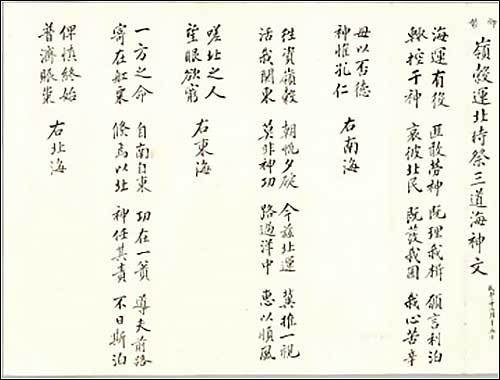 御製
嶺穀運北時祭三道海神文
海運有役 匪敢勞神 既理我楫 願言利泊
控于神 哀彼北民 既發我囷 我心苦辛
毋以否德
神惟孔仁 右南海
往資嶺穀 朝帆夕碇 今茲北運 冀推一視
活我関東 莫非神功 路過洋中 惠以順風
嗟北之人
望眼欲窮 右東海
一方之命 自南自東 功在一簣 導夫前路
寄在舡粟 倏焉以北 神任其責 不日斯泊
俾慎終始
普濟賑 右北海